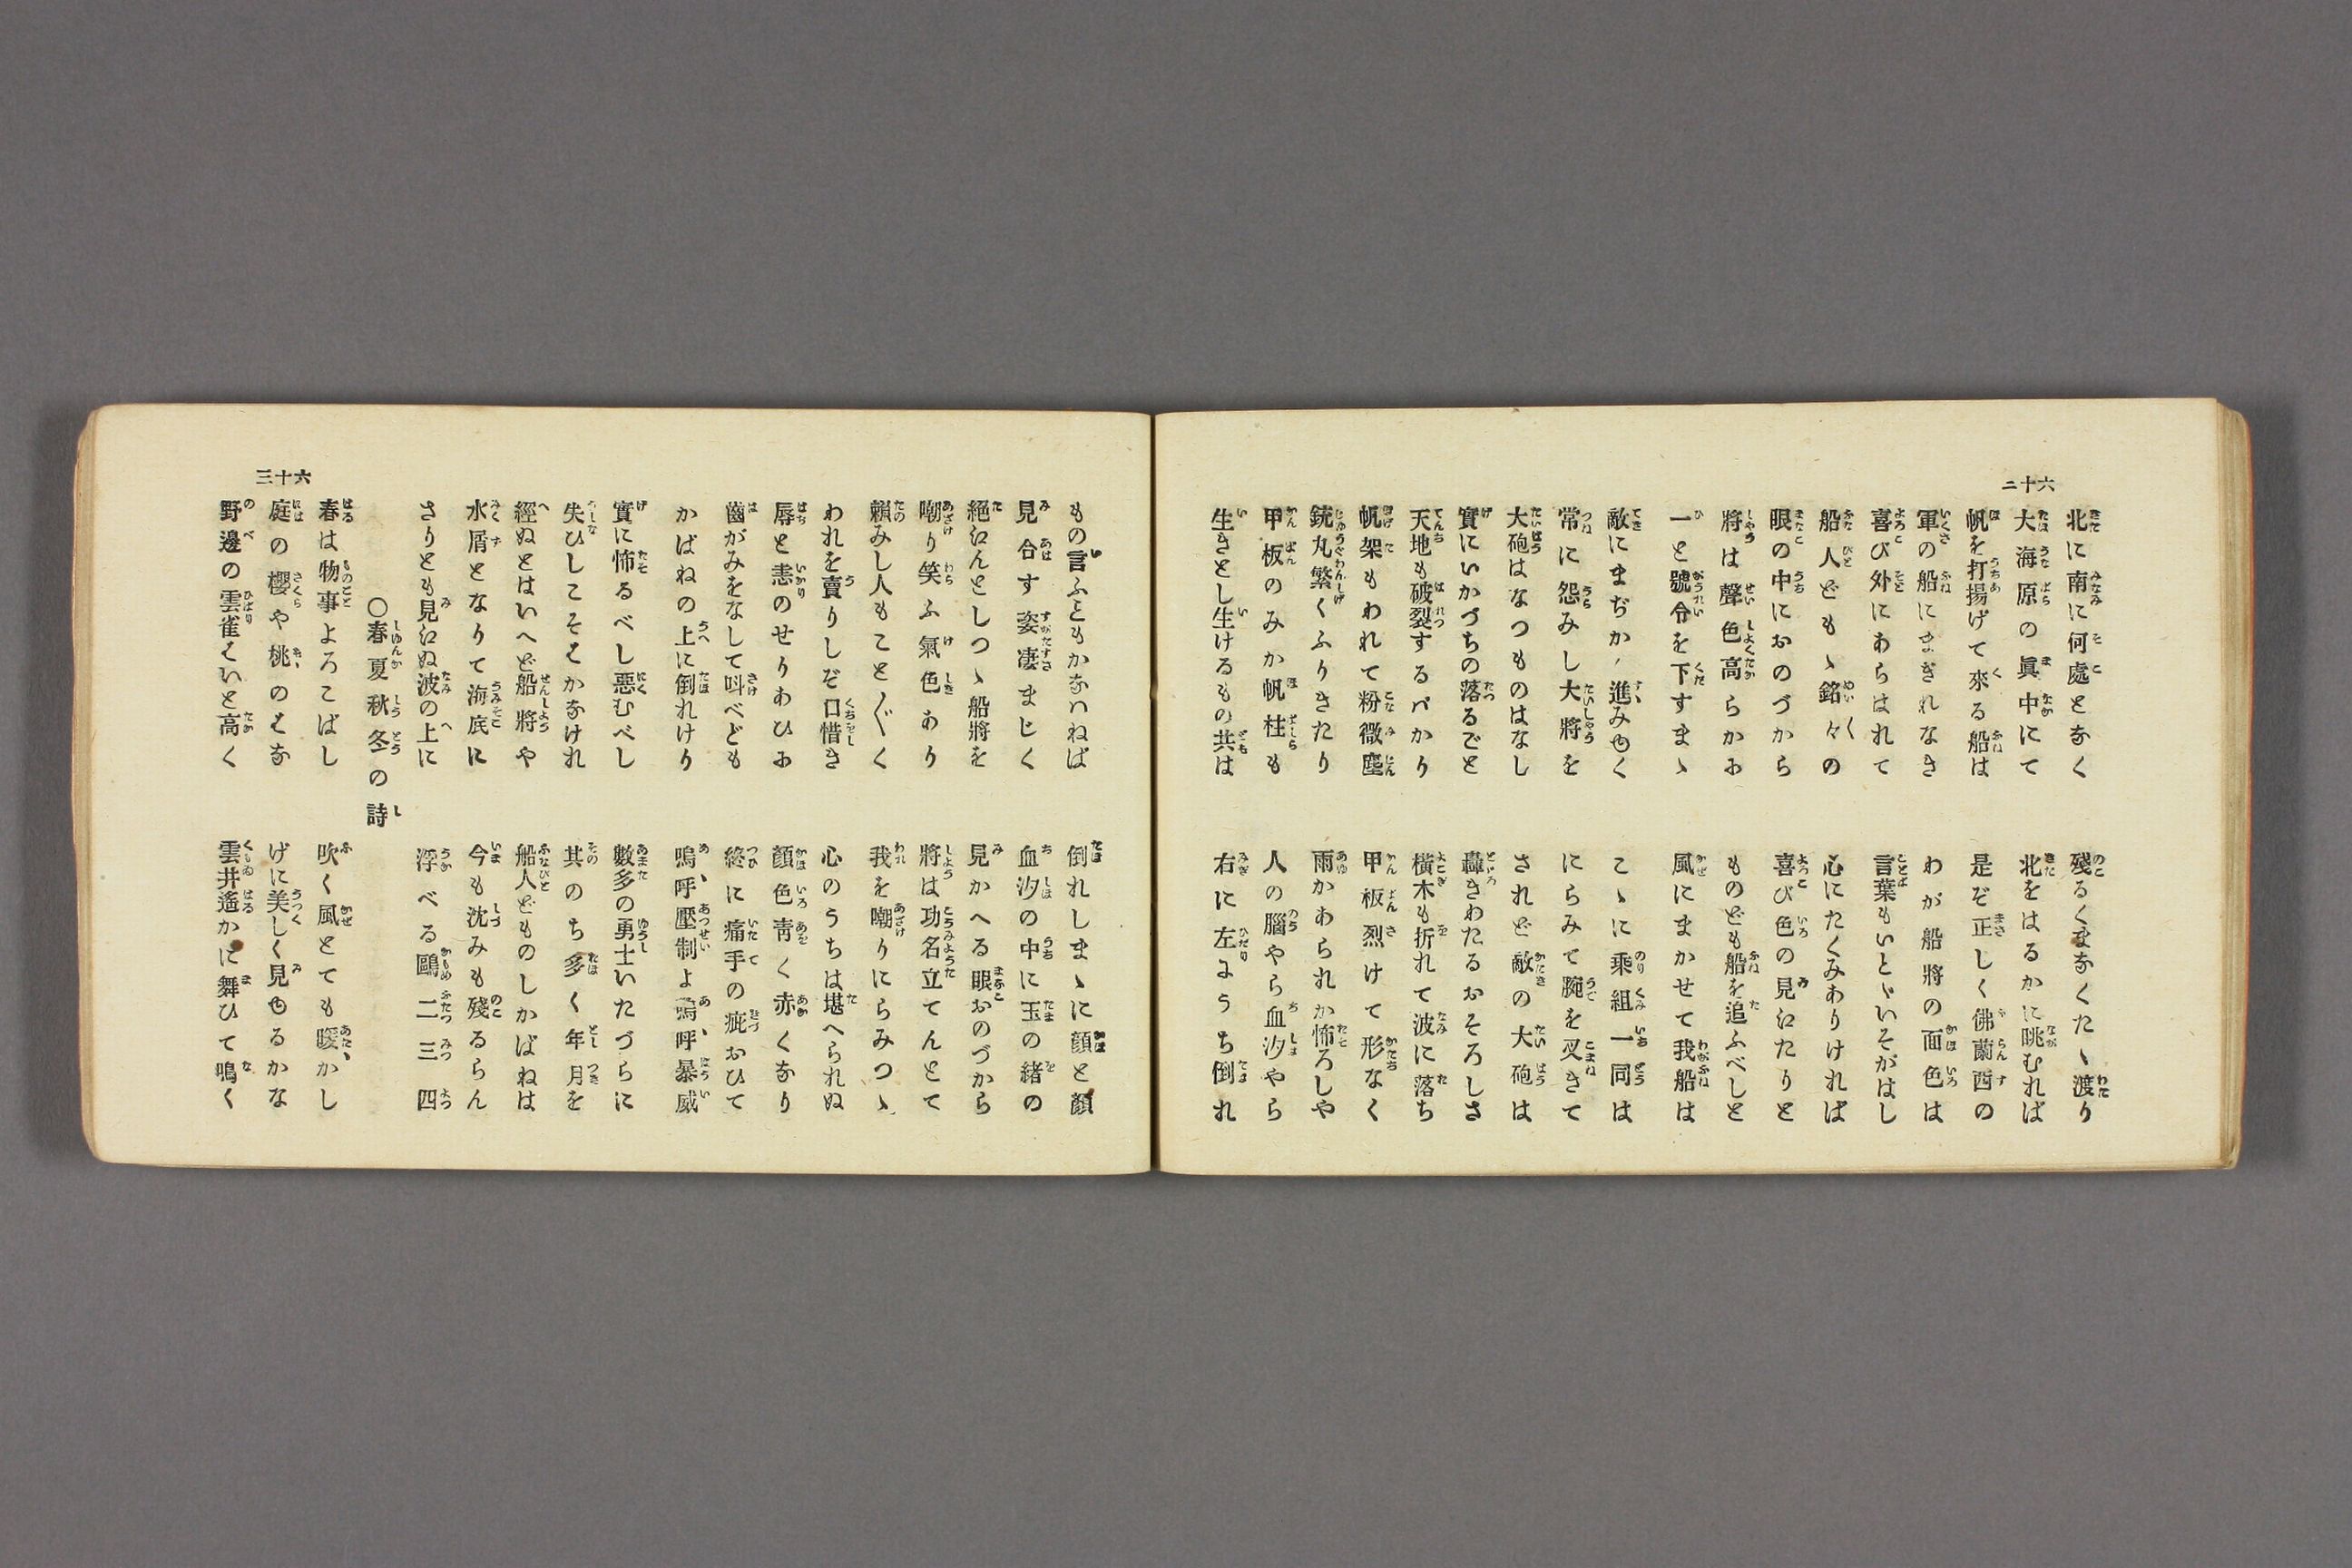 六十二
北に南に何處となく 殘るくまなくたゝ渡り
大海原の眞中にて 北をはるかに眺むれば
帆を打揚げて來る船は 是ぞ正しく佛蘭西の
軍の船にまぎれなき わが船將の面色は
喜び外にあらはれて 言葉もいとゞいそがはし
船人どもゝ銘々の 心にたくみありければ
眼の中におのづから 喜び色の見えたりと
將は聲色高らかに ものども船を追ふべしと
一と號令を下すまゝ 風にまかせて我船は
敵にまぢかく進みゆく こゝに乘組一同は
常に怨みし大將を にらみて腕を叉きて
大砲はなつものはなし されど敵の大砲は
實にいかづちの落るごと 轟きわたるおそろしさ
天地も破裂するバかり 橫木も折れて波に落ち
帆架もわれて粉微塵 甲板烈けて形なく
銃丸繁くふりきたり 雨かあられか怖ろしや
甲板のみか帆柱も 人の腦やら血汐やら
生きとし生けるもの共は 右に左にうち倒れ
もの言ふともかなハねば 倒れしまゝに顏と顏
見合す姿凄まじく 血汐の中に玉の緒の
絕えんとしつゝ船將を 見かへる眼おのづから
嘲り笑ふ氣色あり 將は功名立てんとて
賴みし人もこと〲く 我を嘲りにらみつゝ
われを賣りしぞ口惜き 心のうちは堪へられぬ
辱と恚のせりあひに 顏色靑く赤くなり
齒がみをなして呌べども 終に痛手の疵おひて
かばねの上に倒れけり 嗚呼壓制よ嗚呼暴威
實に怖るべし惡むべし 數多の勇士いたづらに
失ひしこそはかなけれ 其のち多く年月を
經ぬとはいへど船將や 船人どものしかばねは
水屑となりて海底に 今も沈みも殘るらん
さりとも見えぬ波の上に 浮べる鷗二三四
〇春夏秋冬の詩
春は物事よろこばし 吹く風とても暖かし
庭の櫻や桃のはな げに美しく見ゆるかな
野邊の雲雀はいと高く 雲井遙かに舞ひて鳴く
六十三